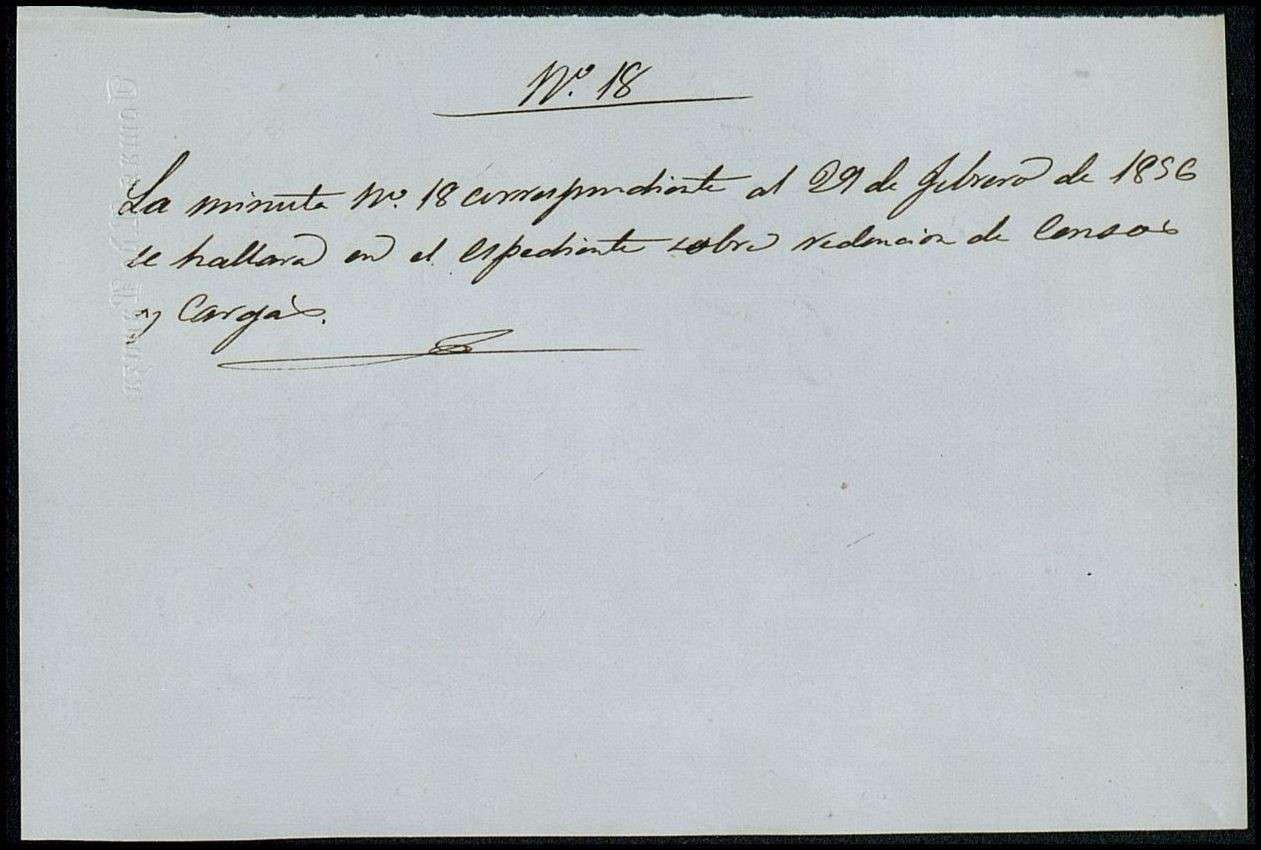 Nº. 18
La minuta Nº. 18 correspondiente al 29 de febrero de 1856
se hallara en el espediente sobre redencion de Censos
y Cargas.